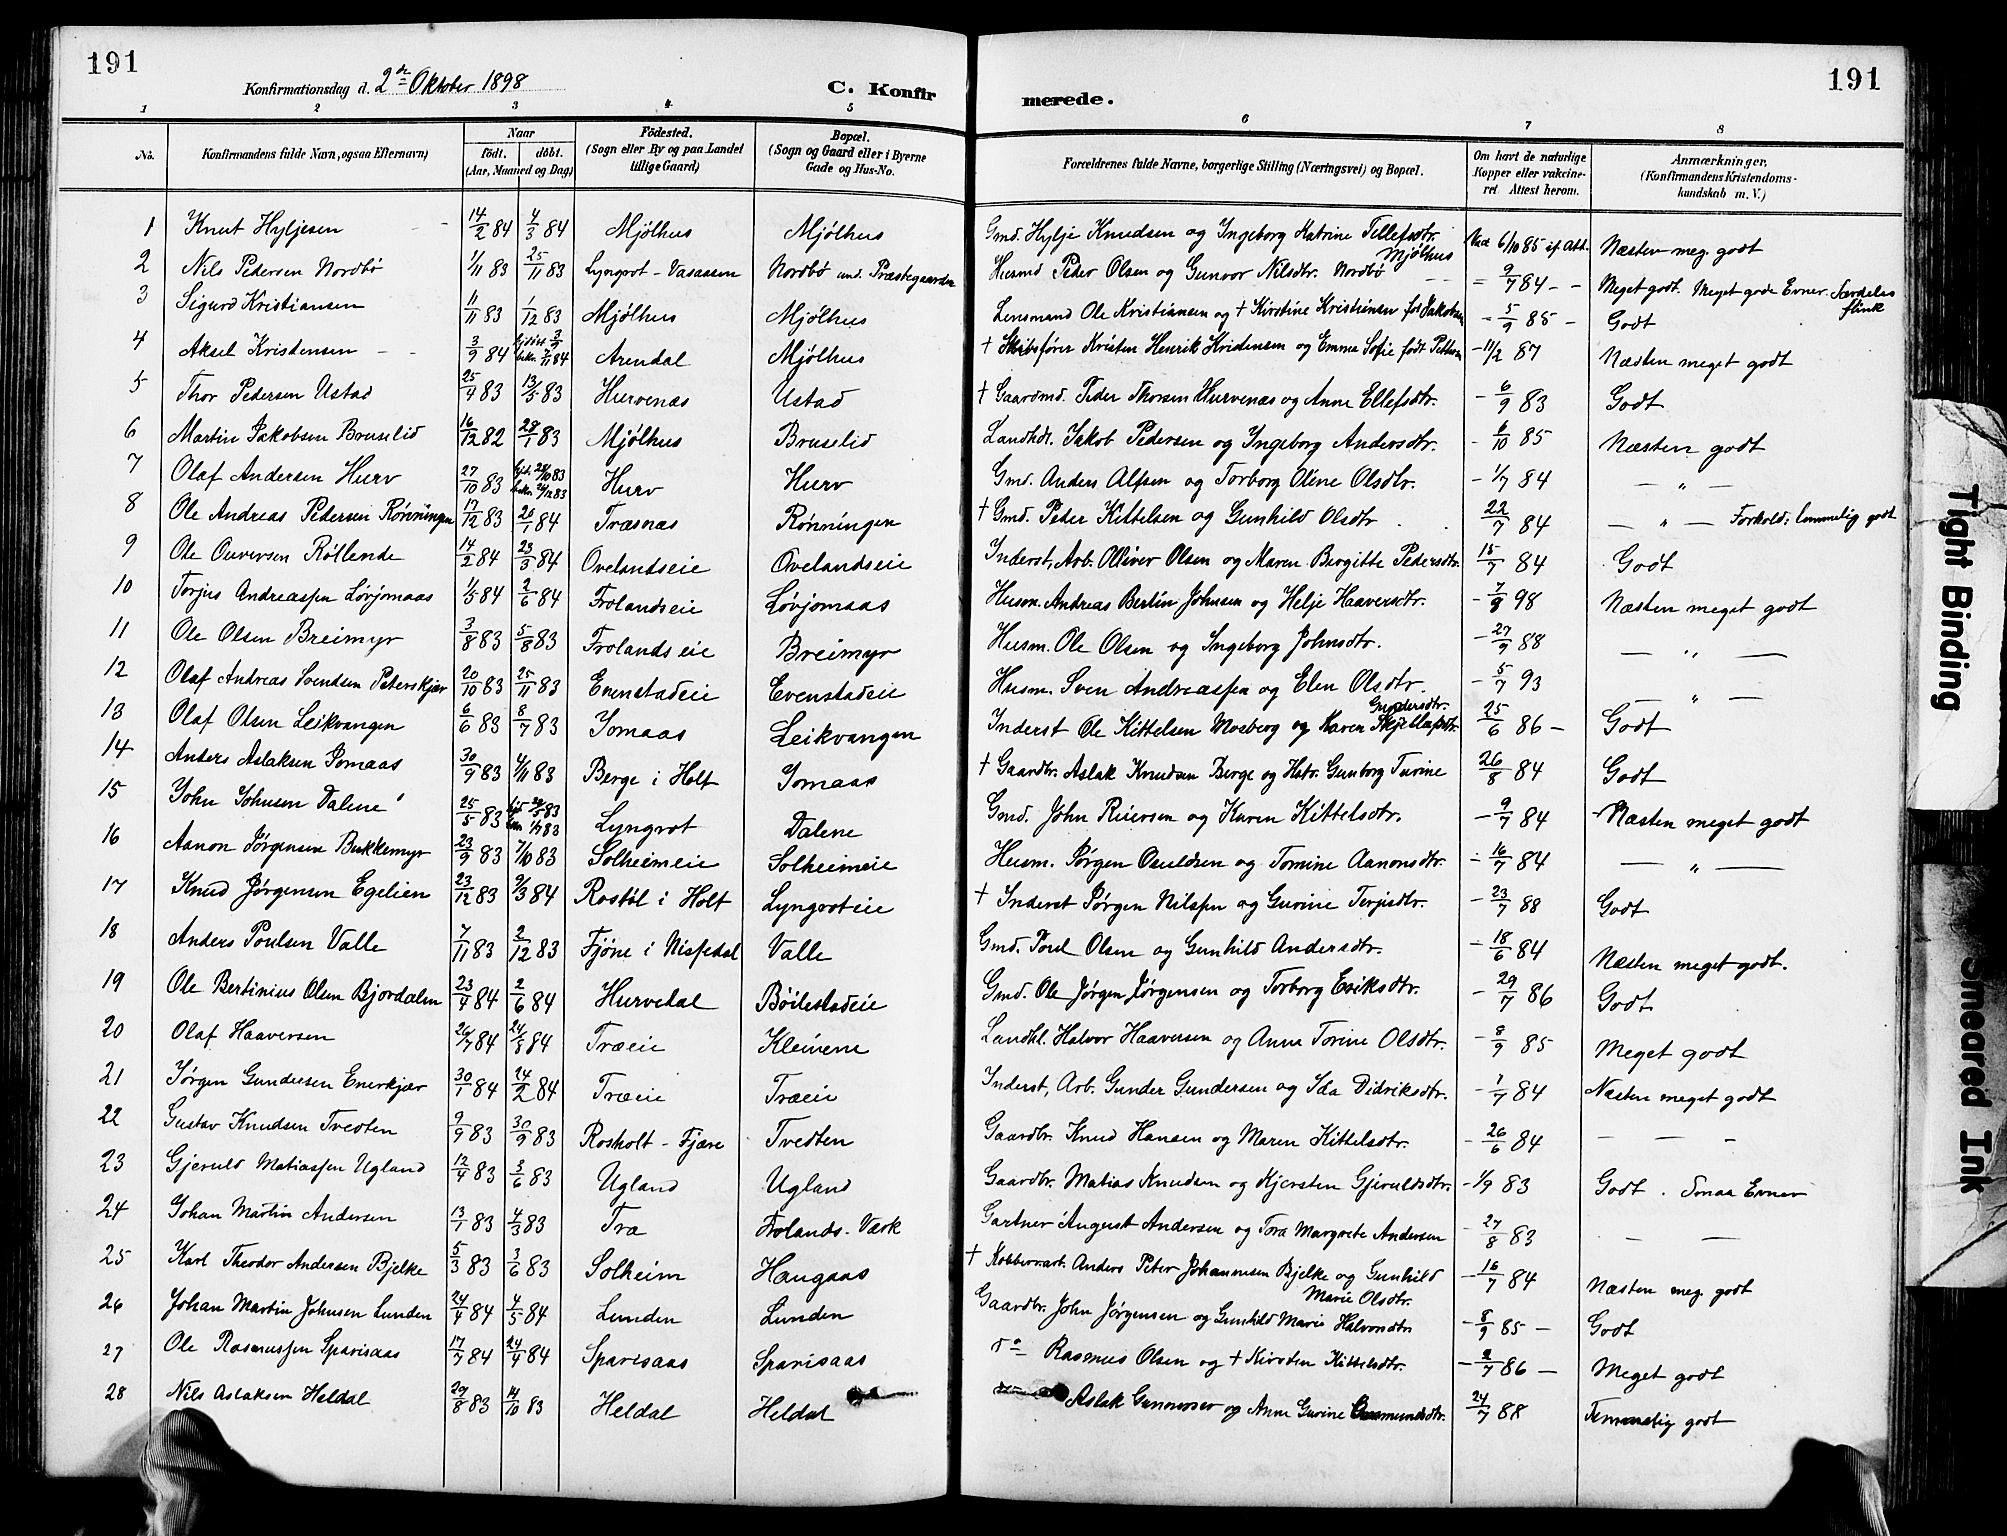 191
Konfirmationsdag d. 2de Oktober 1898
C. Konfir
merede.
191
1 2 3 4 5 6 7 8
No.
Konfirmandens fulde Navn, ogsaa Efternavn)
Naar
födt. döbt.
(Aar, Maaned og Dag)
Födested.
(Sogn eller By og paa Landet
tillige Gaard)
Bopæl.
(Sogn og Gaard eller i Byerne
Gade og Hus-No.
Forældrenes fulde Navne, borgerlige Stilling (Næringsvei) og Bopæl.
Om havt de naturlige
Kopper eller vakcine-
ret. Attest herom.
Anmærkninger.
(Konfirmandens Kristendoms-
kundskab m. V.)
1 Knut Hyljesen 14/2 84 4/3 84 Mjølhus Mjølhus Gmd. Hylje Knudsen og Ingeborg Katrine Tellefsdtr. Mjølhus Vac 6/10 85 if. Att. Næsten meg. godt
2 Nils Pedersen Nordbø 1/11 83 25/11 83 Lyngrot - Vasaasen Nordbø und. Præstegaarden Husmd Peder Olsen og Gunvor Nilsdtr. Nordbø - 9/7 84 - - Meget godt. Meget gode Evner. Særdeles flink
3 Sigurd Kristiansen 11/11 83 1/12 83 Mjølhus Mjølhus Lensmand Ole Kristiansen og + Kirstine Kristiansen før Jakobsen - 5/9 85 - Godt
4 Aksel Kristensen 3/9 84 Arendal Mjølhus + Skibsfører Kristen Henrik Kristensen og Emma Sofie født Pettersen - 11/2 87 Næsten meget godt
5 Thor Pedersen Ustad 25/4 83 13/5 83 Hurvenæs Ustad + Gaardmd. Peder Thorsen Hurvenæs og Anne Ellefsdtr. - 6/9 83 Godt
6 Martin Jakobsen Bruselid 16/12 82 28/1 83 Mjølhus Bruselid Landhdl. Jakob Pedersen og Ingeborg Andersdtr. - 6/10 85 Næsten godt
7 Olaf Andersen Hurv 27/10 83 Hurv Hurv Gmd. Anders Alfsen og Torborg Oline Olsdtr. - 1/7 84 — " —
8 Ole Andreas Pedersen Rønningen 17/12 83 20/1 84 Træsnæs Rønningen + Gmd. Peder Kittelsen og Gunhild Olsdtr 22/7 84 — " — Forhold: temmelig godt
9 Ole Ouversen Røllende 14/2 84 23/3 84 Ovelandseie Ovelandseie Inderst, Arb. Olliver Olsen og Maren Bergitte Pedersdtr. 15/7 84 Godt
10 Torjus Andreassen Løvjomaas 1/5 84 2/6 84 Frolandseie Løvjomaas Husm. Andreas Bertin Johnsen og Helje Haaversdtr. - 7/9 98 Næsten meget godt
11 Ole Olsen Breimyr 3/8 83 5/8 83 Frolandseie Breimyr Husm. Ole Olsen og Ingeborg Johnsdtr. - 27/9 88 — " —
12 Olaf Andreas Svendsen Peterskjær 20/10 83 25/11 83 Evenstadeie Evenstadeie Husm. Sven Andreassen og Elen Olsdtr. - 5/7 93 — " —
13 Olaf Olsen Leikvangen 6/6 83 8/7 83 Jomaas Leikvangen Inderst Ole Kittelsen Mosberg og Karen Gundersdtr. 25/6 86 - Godt
14 Anders Aslaksen Jomaas 30/9 83 4/11 83 Berge i Holt Jomaas + Gaardbr. Aslak Knudsen Berge og Hstr. Gunborg Turine 26/8 84 Godt
15 John Johnsen Dalene 25/5 83 Lyngrot Dalene Gmd. John Reiersen og Karen Kittelsdtr. - 9/7 84 Næsten meget godt
16 Aanon Jørgensen Bukkemyr 23/9 83 7/10 83 Solheimeie Solheimeie Husm. Jørgen Osuldsen og Tomine Aanonsdtr. - 16/7 84 — " —
17 Knud Jørgensen Egelien 23/12 83 9/3 84 Rostøl i Holt Lyngroteie + Inderst Jørgen Nilssen og Gurine Terjisdtr. - 23/7 88 Godt
18 Anders Poulsen Valle 7/11 83 2/12 83 Fjøne i Nissedal Valle Gmd. Poul Olsen og Gunhild Andersdtr. - 18/6 84 Næsten meget godt.
19 Ole Bertinius Olsen Bjordalen 23/4 84 2/6 84 Hurvedal Bøilestadeie Gmd. Ole Jørgen Jørgensen og Torborg Eriksdtr. - 29/7 86 Godt
20 Olaf Haaversen 26/7 84 24/8 84 Træeie Kleivene Landhl. Halvor Haaversen og Anne Torine Olsdtr. - 8/9 85 Meget godt
21 Jørgen Gundersen Enerkjær 30/1 84 24/2 84 Træeie Træeie Inderst, Arb. Gunder Gundersen og Ida Didriksdtr. - 7/7 84 Næsten meget godt
22 Gustav Knudsen Tvedten 9/9 83 30/9 83 Rosholt - Fjære Tvedten Gaardbr. Knud Hansen og Maren Kittelsdtr. - 26/6 84 — — -
23 Gjeruld Matiassen Ugland 12/4 83 3/6 83 Ugland Ugland Gaardbr. Matias Knudsen og Kjersten Gjeruldsdtr. - 1/9 83 Godt. Smaa Evner
24 Johan Martin Andersen 13/1 83 4/3 83 Træ Frolands-Værk Gartner August Andersen og Tora Margrete Andersen - 27/8 83 — —
25 Karl Theodor Andersen Bjelke 5/3 83 3/6 83 Solheim Haugaas + Kobberarb. Anders Peter Johannesen Bjelke og Gunhild Marie Olsdtr. - 16/7 84 Næsten meg. godt
26 Johan Martin Johnsen Lunden 24/4 84 4/5 84 Lunden Lunden Gaardbr. John Jørgensen og Gunhild Marie Halvorsdtr - 8/9 85 - Godt
27 Ole Rasmussen Sparisaas 17/7 84 Sparisaas Sparisaas do Rasmus Olsen og + Kirsten Kittelsdtr. - 2/7 86 - Meget godt
28 Nils Aslaksen Heldal 29/8 83 14/10 83 Heldal Heldal Aslak Gunnarsen og Anne Gurine Aasmundsdtr. 24/7 88 Temmelig godt
Tight Binding
Smeared Ink